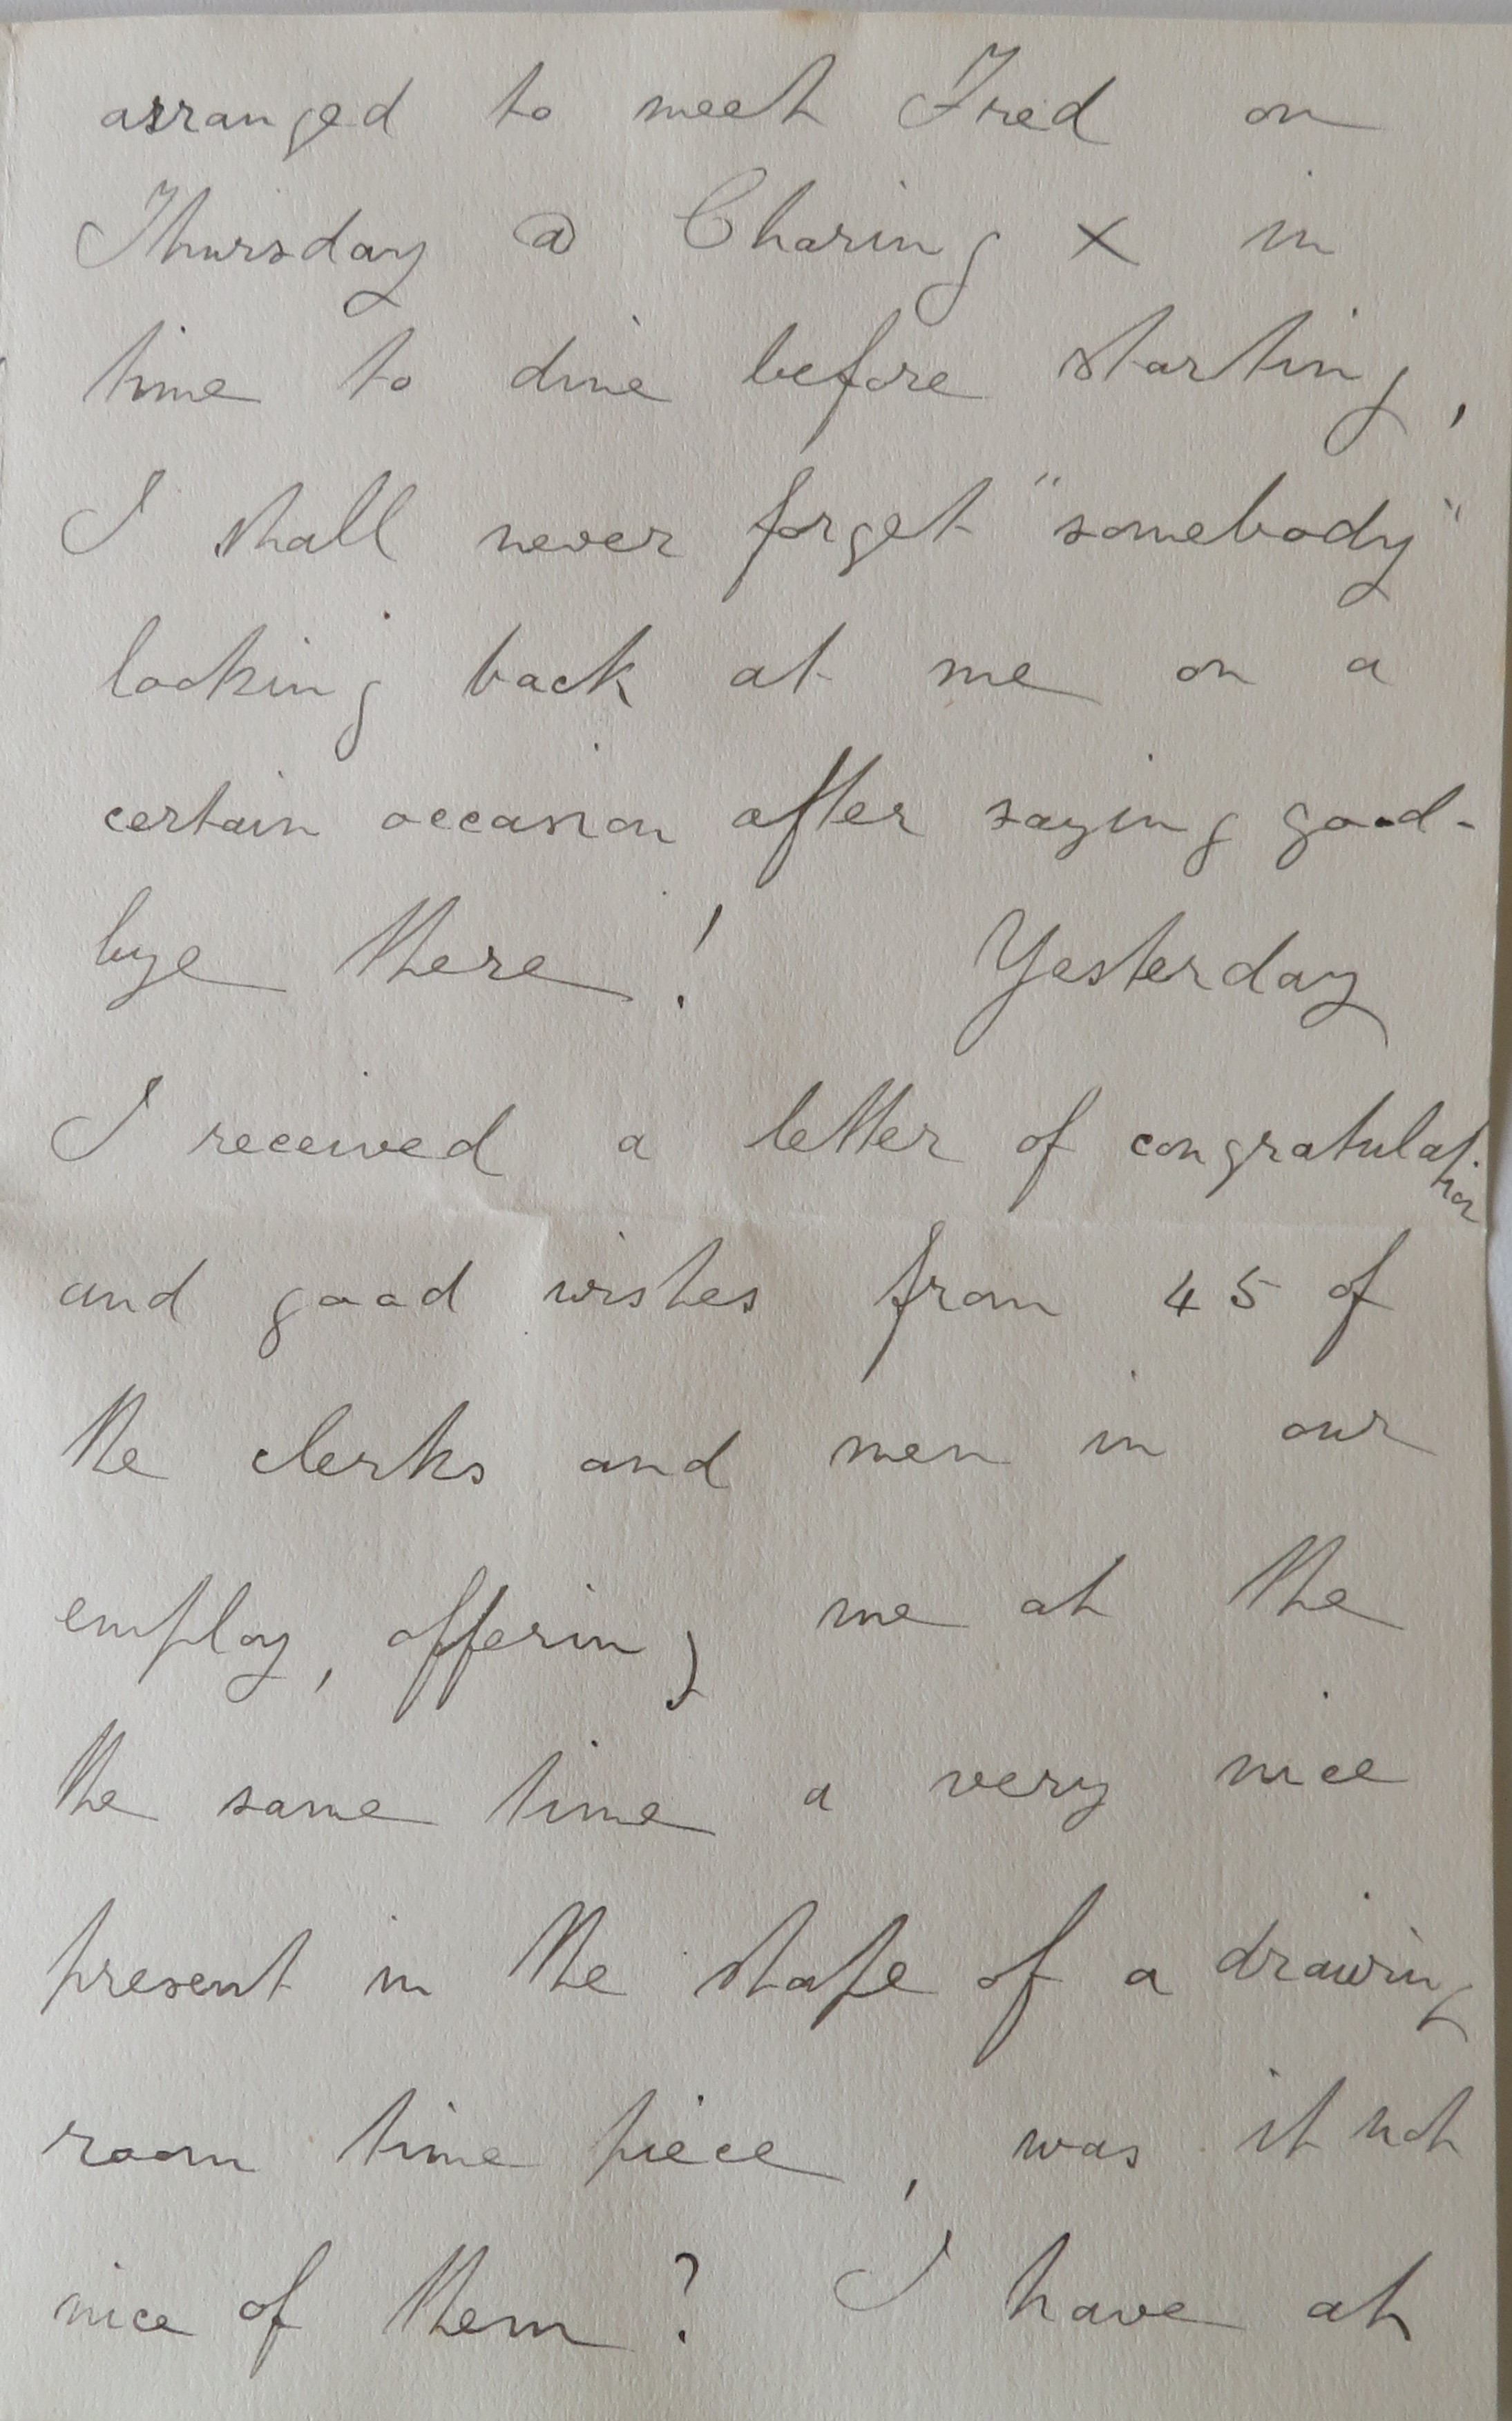 arranged to meet Fred on
Thursday @ Charing X in
time to dine before starting,
I shall never forget "somebody"
looking back at me on a
certain occasion after saying good-
bye there! Yesterday
I received a letter of congratulation
and good wishes from 45 of
the clerks and men in our
employ, offering me at the
the same time a very nice
present in the shape of a drawing
room time piece, was it not
nice of them? I have at